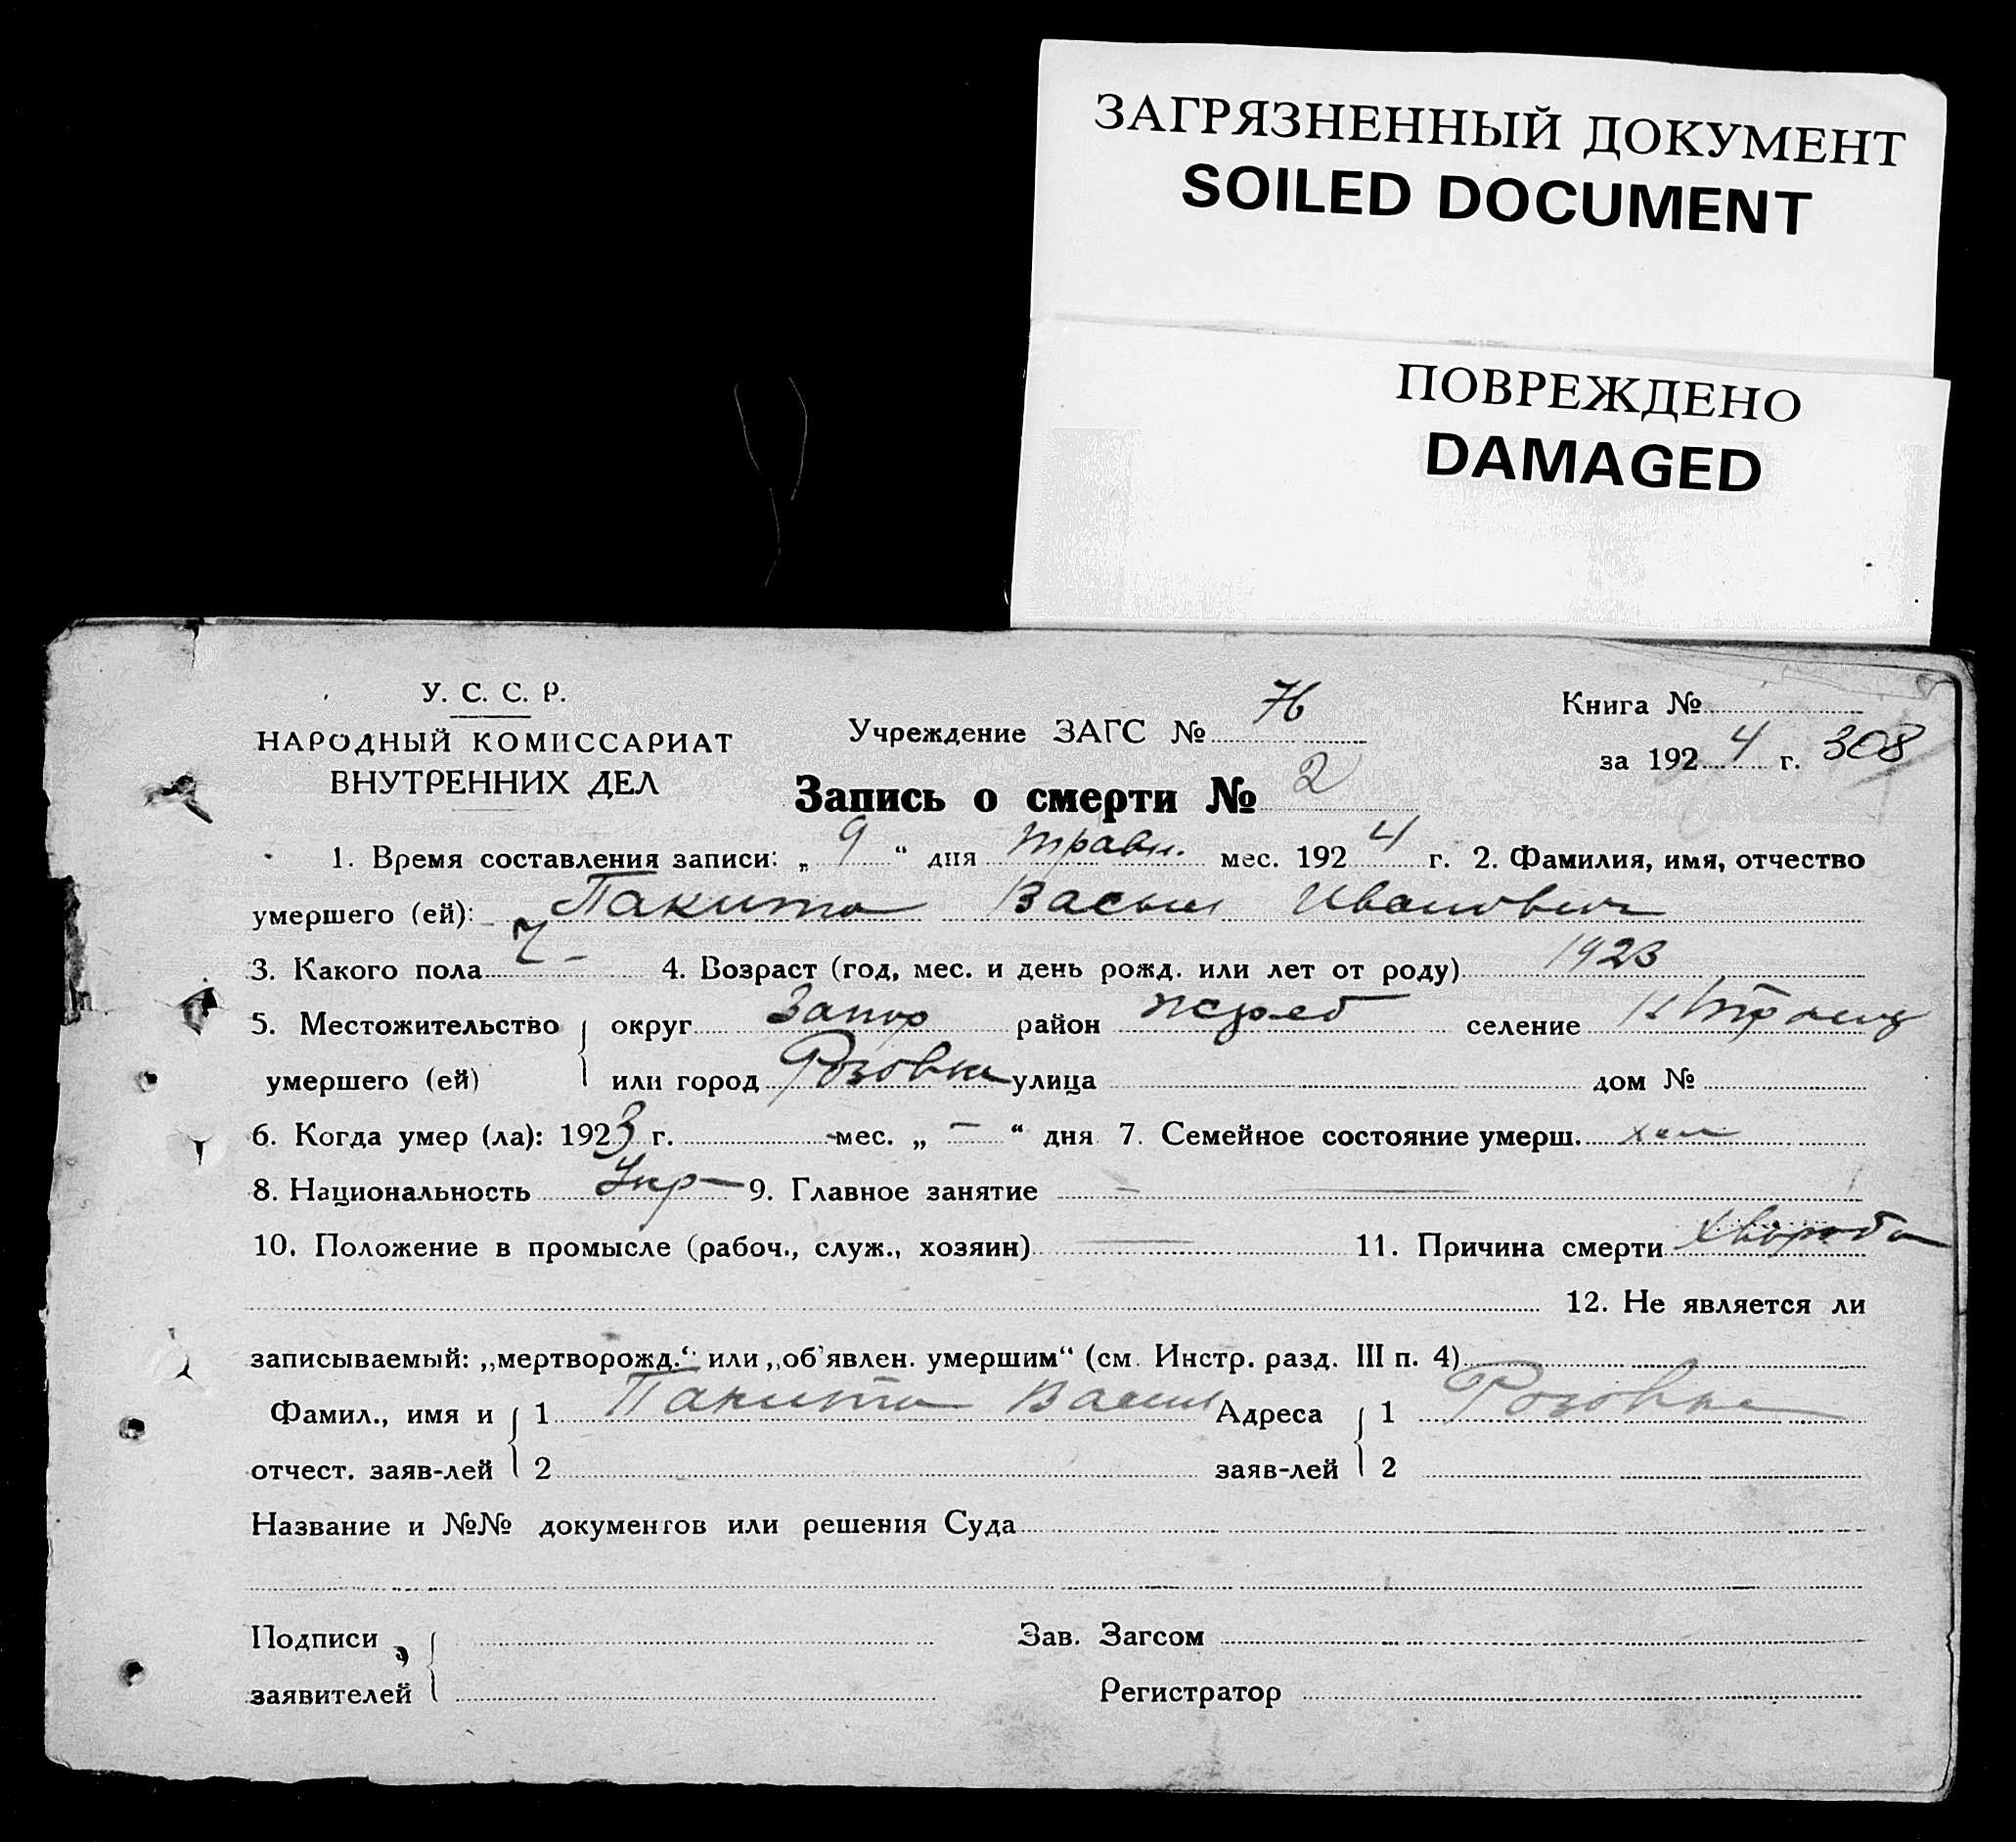 ЗАГРЯЗНЕННЫЙ ДОКУМЕНТ
SOILED DOCUMENT
ПОВРЕЖДЕНО
DAMAGED
У. С. С. Р.
НАРОДНЫЙ КОМИССАРИАТ
ВНУТРЕННИХ ДЕЛ
Учреждение ЗАГС № 76
Книга №
за 1924 г. 308
Запись о смерти № 2
1. Время составления записи: „ 9 “ дня травн. мес. 1924 г. 2. Фамилия, имя, отчество
умершего (ей): Пакита Васыл Иванович
3. Какого пола Ч - 4. Возраст (год, мес. и день рожд. или лет от роду) 1923
5. Местожительство округ Запор район жереб селение
умершего (ей) или город Розовка улица дом №
6. Когда умер (ла): 1923 г. - мес. „ - “ дня 7. Семейное состояние умерш.
8. Национальность Укр- 9. Главное занятие -
10. Положение в промысле (рабоч., служ., хозяин) 11. Причина смерти хвороба
12. Не является ли
записываемый: „мертворожд.“ или „об'явлен. умершим“ (см. Инстр. разд. III п. 4)
Фамил., имя и 1 Пакита Васил Адреса 1 Розовка
отчест. заяв-лей 2 заяв-лей 2
Название и №№ документов или решения Суда
Подписи Зав. Загсом
заявителей Регистратор